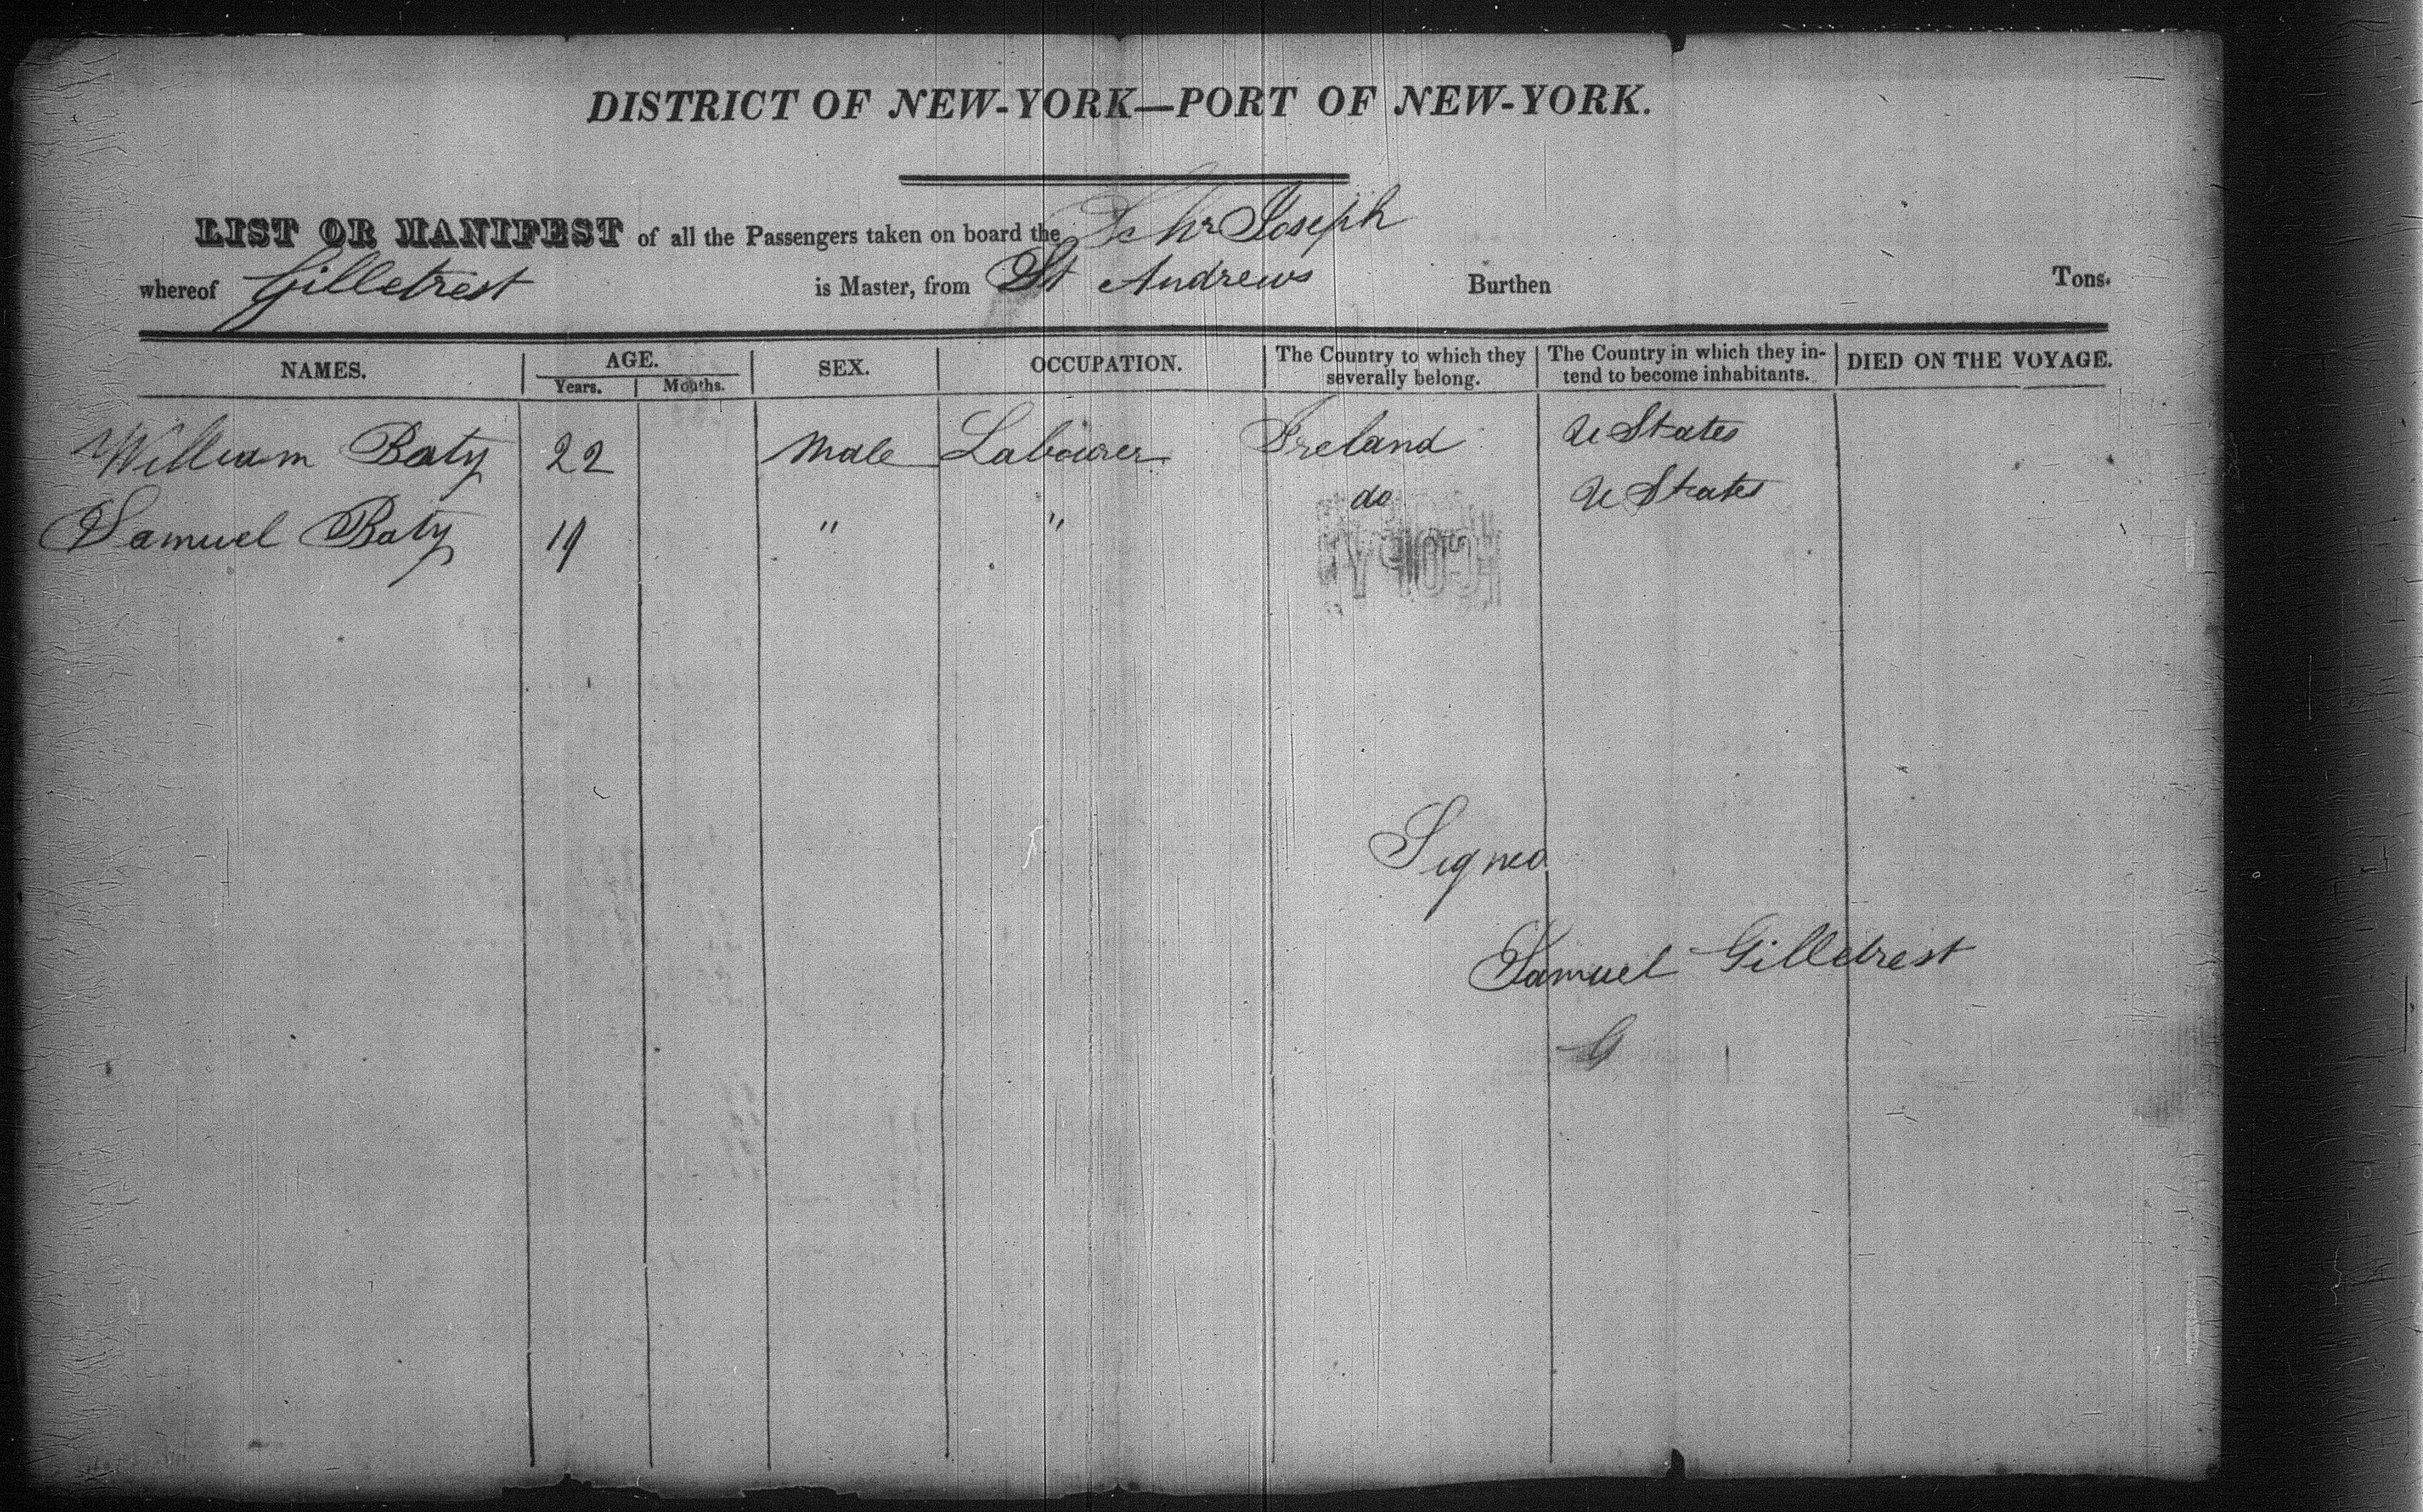 DISTRICT OF NEW-YORK—PORT OF NEW-YORK.
LIST OR MANIFEST of all the Passengers taken on board the Schr Joseph
whereof Gilletrest is Master, from St Andrews Burthen Tons.
NAMES. AGE. SEX. OCCUPATION. The Country to which they severally belong. The Country in which they intend to become inhabitants. DIED ON THE VOYAGE.
Years. Months.
William Baty 22 Male Labourer Ireland U States
Samuel Baty 19 " " do U States
COPY
Signed
Samuel Gilletrest
G